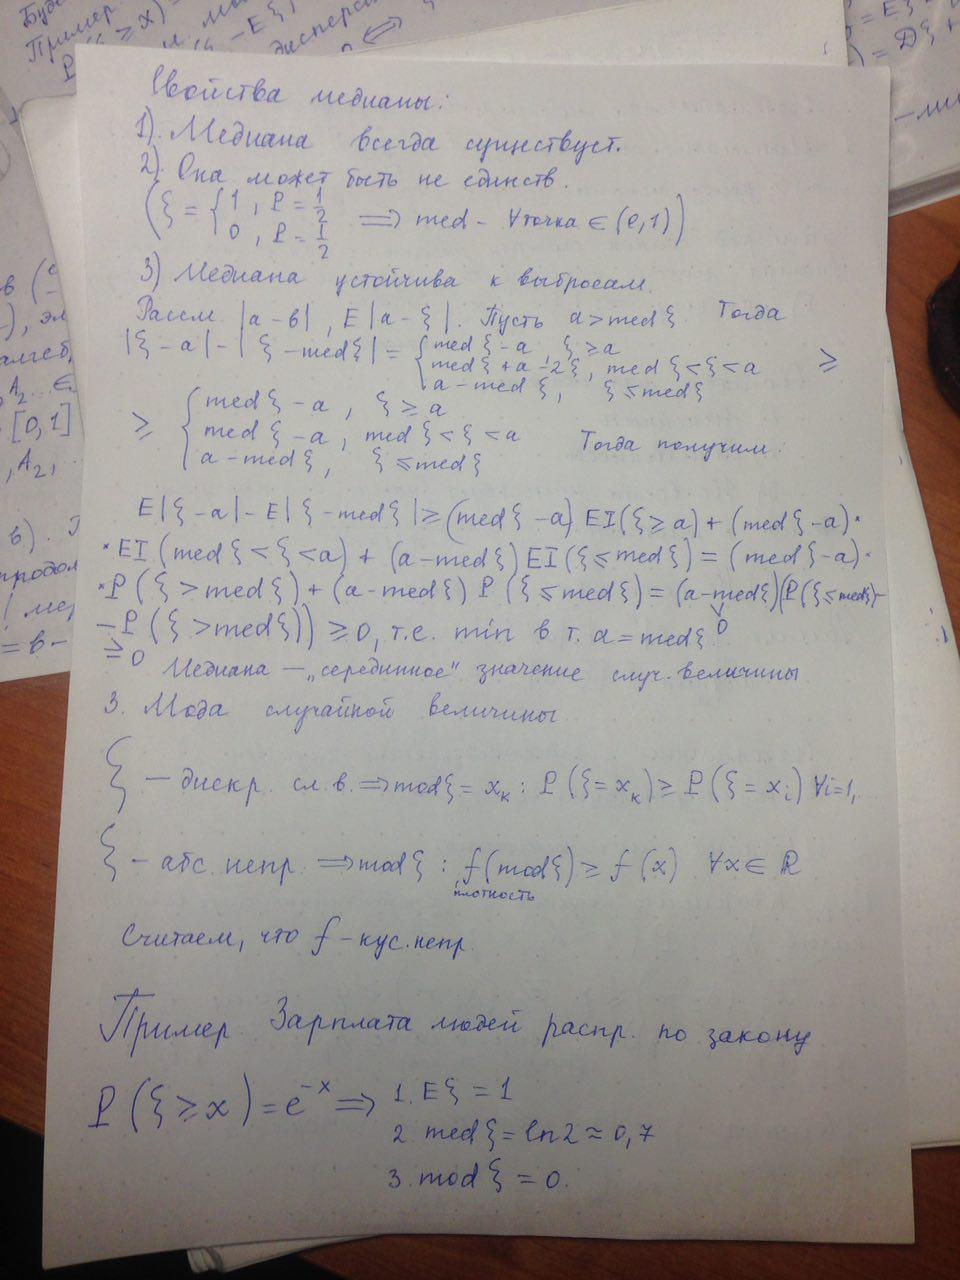 Будe
Пример
P(ξ ≥ x)
- Eξ
дисперс
= Eξ
) = Dξ +
Свойства медианы:
1). Медиана всегда существует.
2). Она может быть не единств.
(ξ = { 1, P = 1/2
0, P = 1/2 ⟹ med - ∀ точка ∈ (0,1))
3) Медиана устойчива к выбросам.
Рассм. |a - b|, E|a - ξ|. Пусть a > med ξ. Тогда
|ξ - a| - |ξ - med ξ| = { med ξ - a, ξ ≥ a
med ξ + a - 2ξ, med ξ < ξ < a ≥
a - med ξ, ξ ≤ med ξ
≥ { med ξ - a, ξ ≥ a
med ξ - a, med ξ < ξ < a Тогда получим:
a - med ξ, ξ ≤ med ξ
E|ξ - a| - E|ξ - med ξ| ≥ (med ξ - a) EI(ξ ≥ a) + (med ξ - a) ·
· EI(med ξ < ξ < a) + (a - med ξ) EI(ξ ≤ med ξ) = (med ξ - a) ·
· P(ξ > med ξ) + (a - med ξ) P(ξ ≤ med ξ) = (a - med ξ)(P(ξ ≤ med ξ) -
- P(ξ > med ξ)) ≥ 0, т.е. min в т. a = med ξ
≥ 0
Медиана — „серединное" значение случ. величины
3. Мода случайной величины
ξ — дискр. сл. в. ⟹ mod ξ = xₖ : P(ξ = xₖ) ≥ P(ξ = xᵢ) ∀i=1,
ξ - абс. непр. ⟹ mod ξ : f(mod ξ) ≥ f(x) ∀x ∈ R
плотность
Считаем, что f - кус. непр.
Пример. Зарплата людей распр. по закону
P(ξ ≥ x) = e⁻ˣ ⟹ 1. Eξ = 1
2. med ξ = ln 2 ≈ 0,7
3. mod ξ = 0.
алгеб
[0,1]
, A₂,
продол
= b -